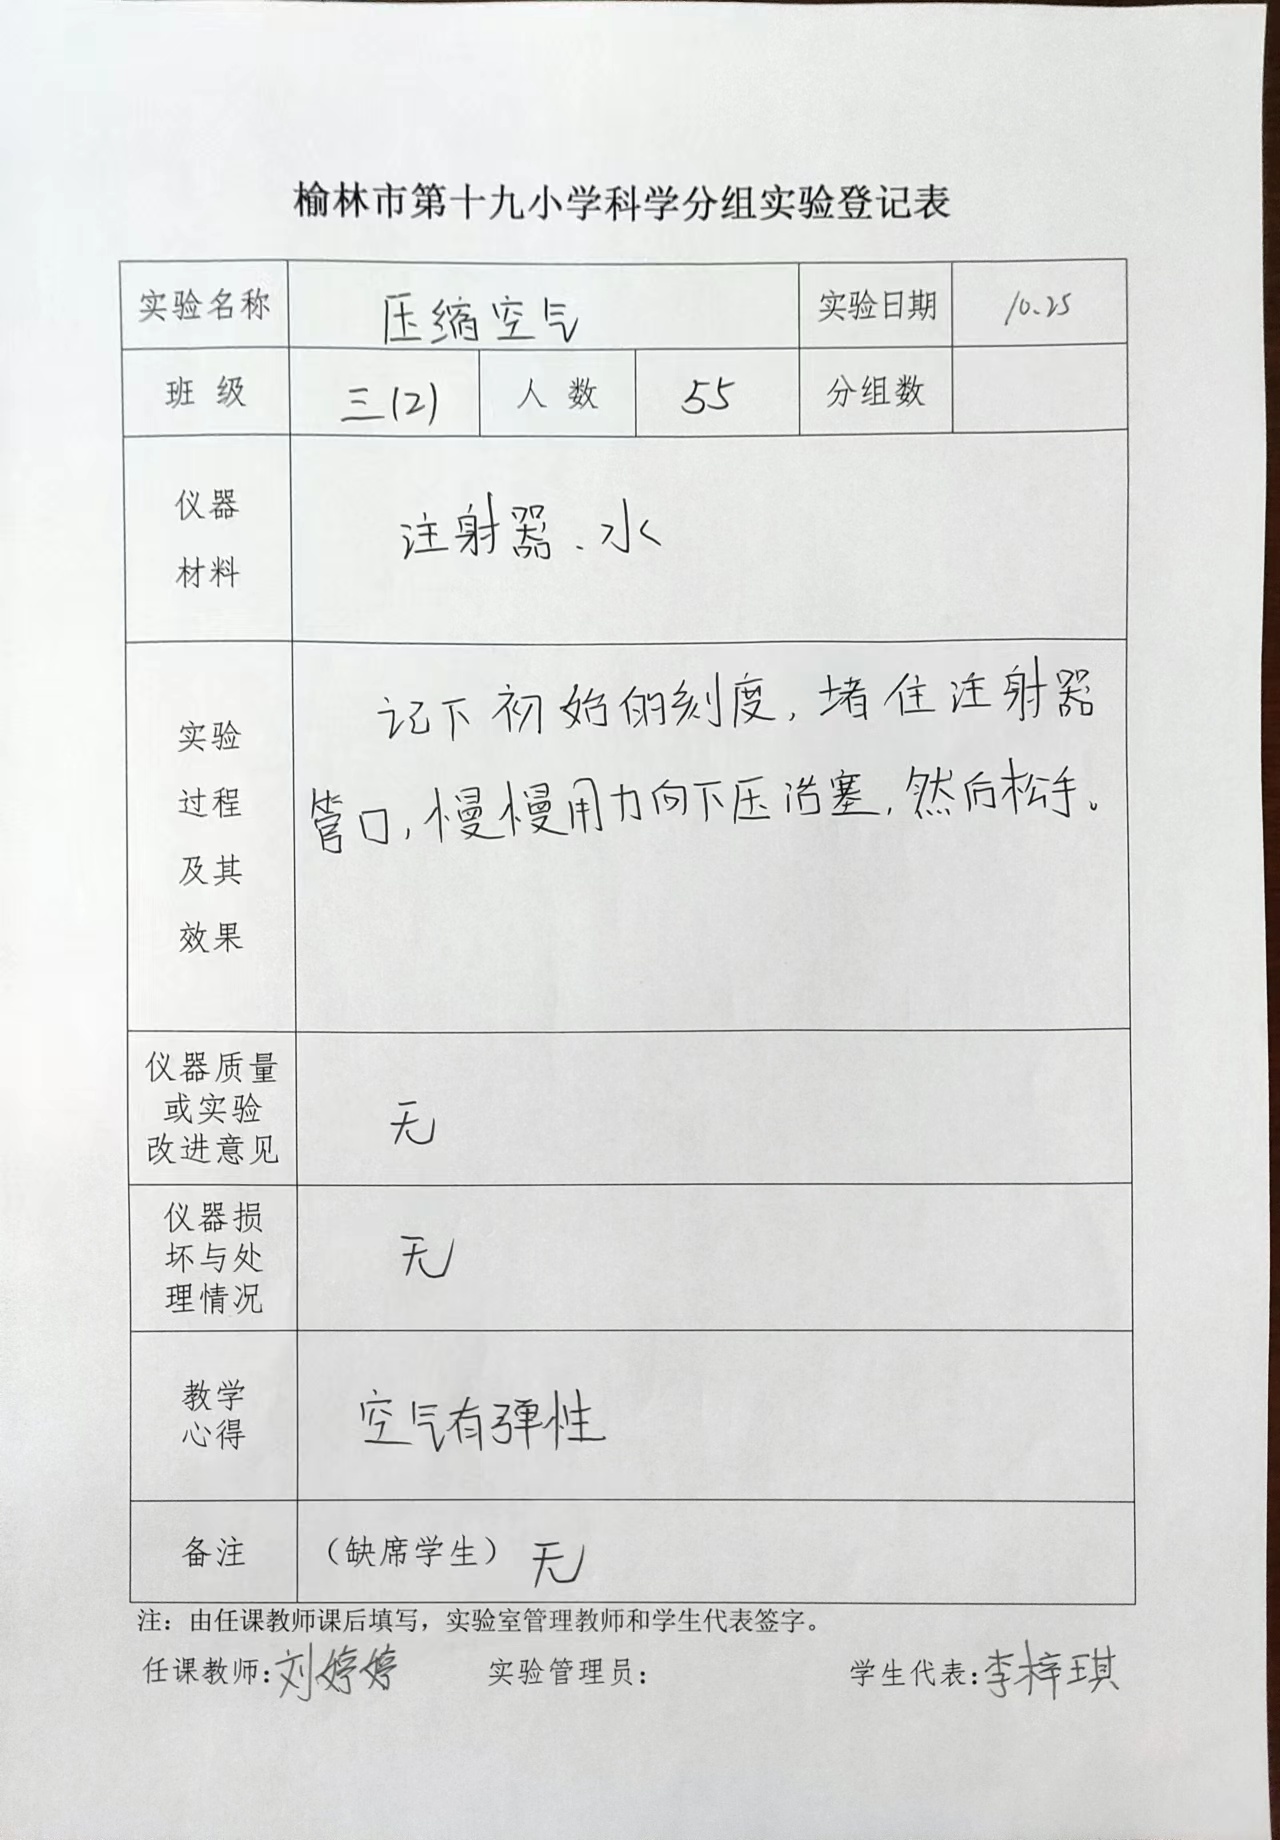 榆林市第十九小学科学分组实验登记表
实验名称 压缩空气 实验日期 10.25
班 级 三(2) 人 数 55 分组数
仪器
材料
注射器、水
实验
过程
及其
效果
记下初始的刻度，堵住注射器
管口，慢慢用力向下压活塞，然后松手。
仪器质量
或实验
改进意见
无
仪器损
坏与处
理情况
无
教学
心得
空气有弹性
备注 （缺席学生） 无
注：由任课教师课后填写，实验室管理教师和学生代表签字。
任课教师：刘婷婷 实验管理员： 学生代表：李梓琪